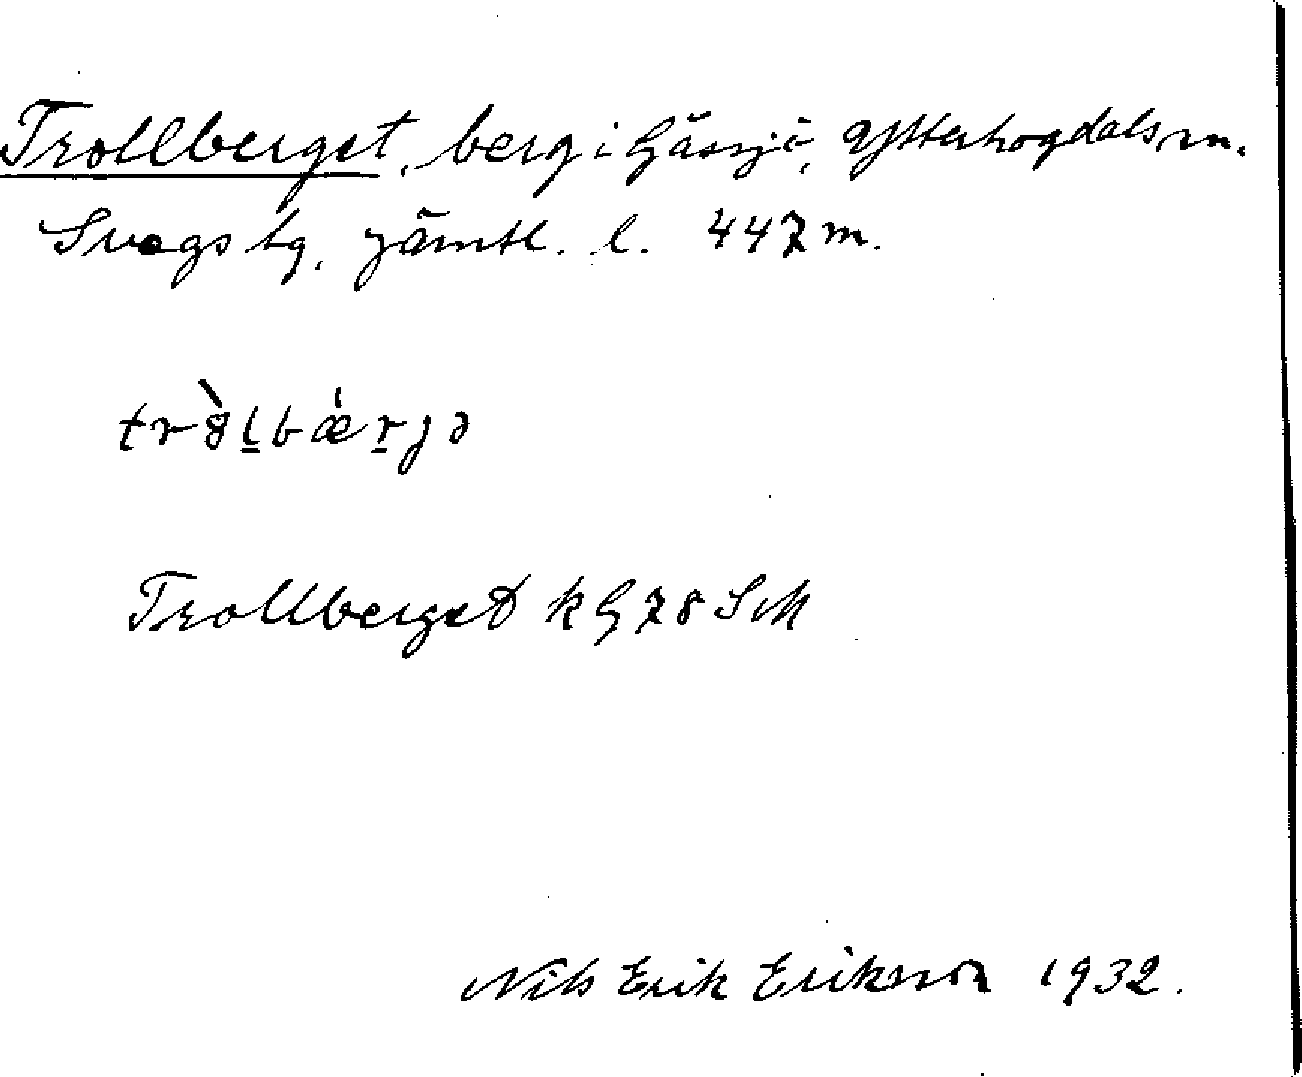 Trollberget, berg i Gåssjö, Ytterhogdals sn.
Svegs tg, Jämtl. l. 447 m.
trò̤l̠bǽr̠jə
Trollberget k G 78 Sth
Nils Erik Erikson 1932.